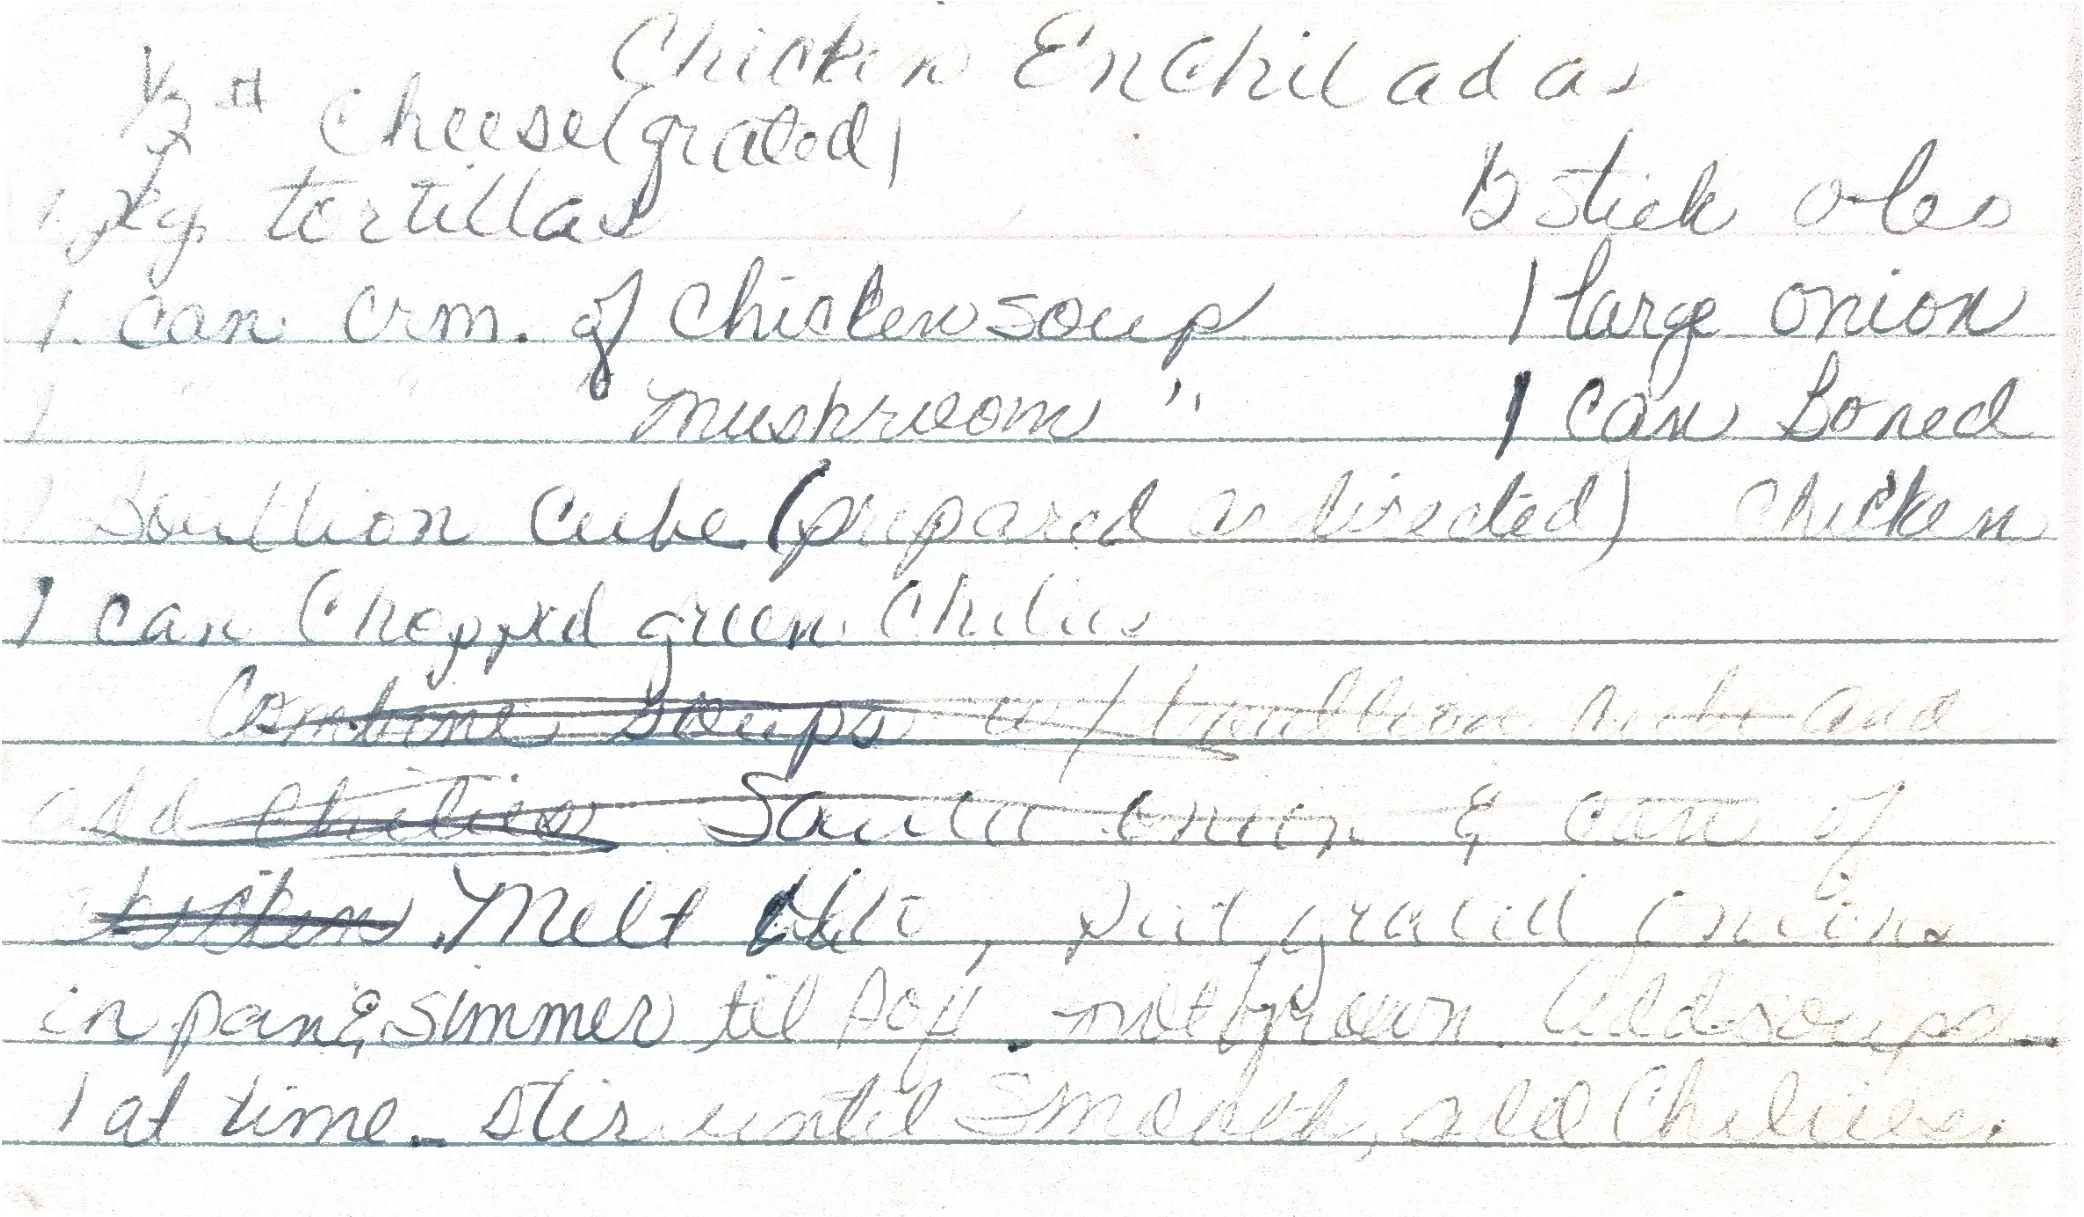 Chicken Enchiladas
1/2 # Cheese (grated)
1 pkg. tortillas
1/2 stick oleo
1 can crm. of chicken soup
1 large onion
1 " " " mushroom "
1 can Boned
1 Bouillion Cube (prepared as directed)
chicken
1 can Chopped green Chilies
Combine Soups w/ bouillion cube and
add Chilies Saute onion & can of
chicken. Melt Oleo, put grated onions
in pan & simmer til soft - not brown. Add soups -
1 at time - Stir until Smooth, add Chilies.